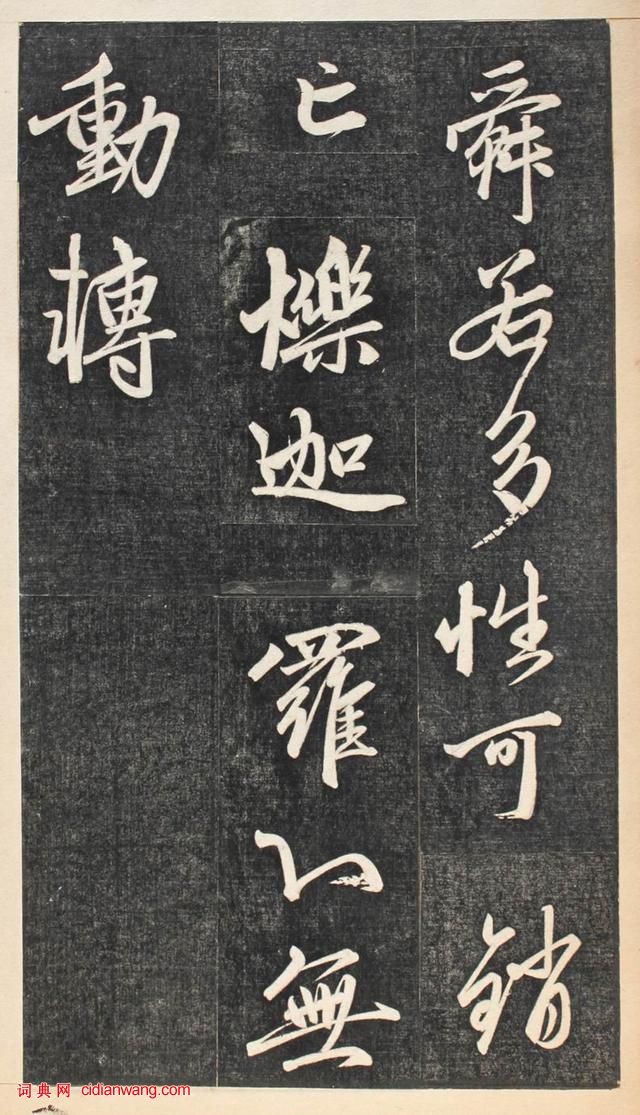 舜若多性可銷
亡爍迦羅心無
動轉
词典网 cidianwang.com